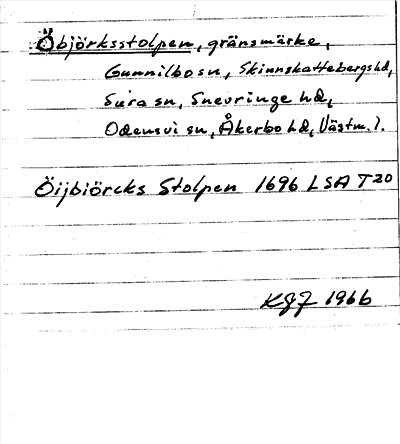 Öbjörksstolpen, gränsmärke,
Gunnilbo sn, Skinnskattebergs hd,
Sura sn, Snevringe hd,
Odensvi sn, Åkerbo hd, Västm. l.
Öijbiörcks Stolpen 1696 LSA T20
KGJ 1966